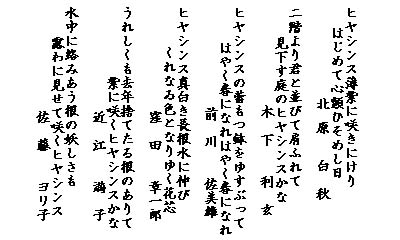 ヒヤシンス薄紫に咲きにけり
はじめて心顫ひそめし日
北原白秋
二階より君と並びて肩ふれて
見下す庭のヒヤシンスかな
木下利玄
ヒヤシンスの蕾もつ鉢をゆすぶって
はや〱春になれはや〱春になれ
前川佐美雄
ヒヤシンス真白き長根水に伸び
くれなゐ色となりゆく花芯
窪田章一郎
うれしくも去年捨てたる根のありて
紫に咲くヒヤシンスかな
近江満子
水中に絡みあう根の妖しさも
露わに見せて咲くヒヤシンス
佐藤ヨリ子